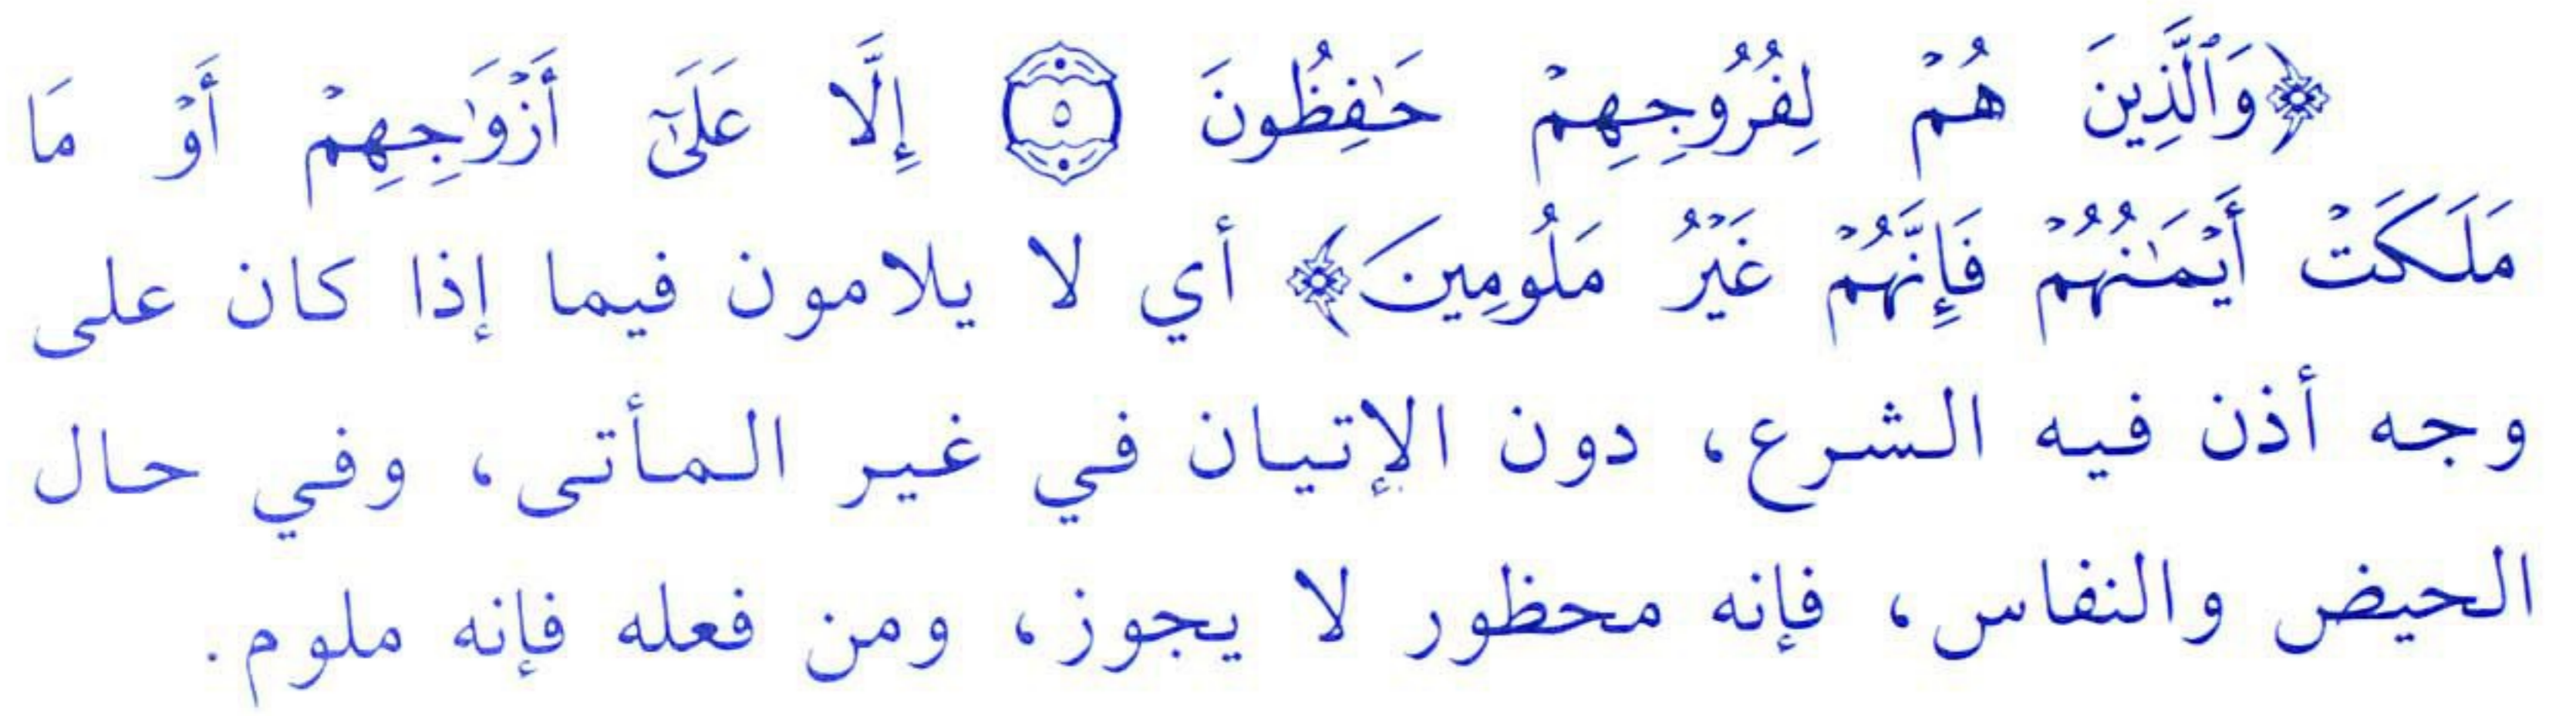 ﴿وَٱلَّذِينَ هُمۡ لِفُرُوجِهِمۡ حَٰفِظُونَ ۝٥ إِلَّا عَلَىٰٓ أَزۡوَٰجِهِمۡ أَوۡ مَا
مَلَكَتۡ أَيۡمَٰنُهُمۡ فَإِنَّهُمۡ غَيۡرُ مَلُومِينَ﴾ أي لا يلامون فيما إذا كان على
وجه أذن فيه الشرع، دون الإتيان في غير المأتى، وفي حال
الحيض والنفاس، فإنه محظور لا يجوز، ومن فعله فإنه ملوم.